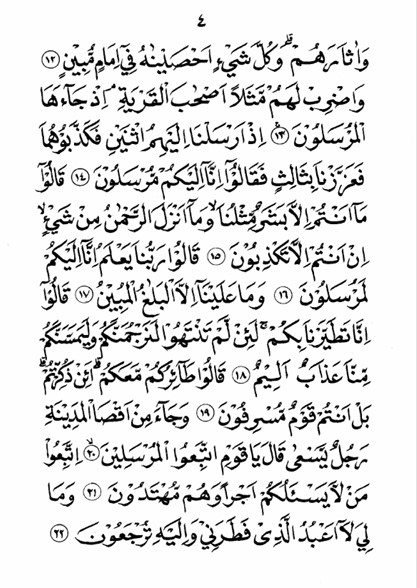 ٤
وَاٰثَارَهُمْ ۗ وَكُلَّ شَيْءٍ اَحْصَيْنٰهُ فِيْٓ اِمَامٍ مُّبِيْنٍ ﴿١٢﴾
وَاضْرِبْ لَهُمْ مَّثَلًا اَصْحٰبَ الْقَرْيَةِ ۘ اِذْ جَآءَهَا
الْمُرْسَلُوْنَ ﴿١٣﴾ اِذْ اَرْسَلْنَآ اِلَيْهِمُ اثْنَيْنِ فَكَذَّبُوْهُمَا
فَعَزَّزْنَا بِثَالِثٍ فَقَالُوْٓا اِنَّآ اِلَيْكُمْ مُّرْسَلُوْنَ ﴿١٤﴾ قَالُوْا
مَآ اَنْتُمْ اِلَّا بَشَرٌ مِّثْلُنَا ۙ وَمَآ اَنْزَلَ الرَّحْمٰنُ مِنْ شَيْءٍ ۙ
اِنْ اَنْتُمْ اِلَّا تَكْذِبُوْنَ ﴿١٥﴾ قَالُوْا رَبُّنَا يَعْلَمُ اِنَّآ اِلَيْكُمْ
لَمُرْسَلُوْنَ ﴿١٦﴾ وَمَا عَلَيْنَآ اِلَّا الْبَلٰغُ الْمُبِيْنُ ﴿١٧﴾ قَالُوْٓا
اِنَّا تَطَيَّرْنَا بِكُمْ ۚ لَئِنْ لَّمْ تَنْتَهُوْا لَنَرْجُمَنَّكُمْ وَلَيَمَسَّنَّكُمْ
مِّنَّا عَذَابٌ اَلِيْمٌ ﴿١٨﴾ قَالُوْا طَآئِرُكُمْ مَّعَكُمْ ۗ اَئِنْ ذُكِّرْتُمْ ۗ
بَلْ اَنْتُمْ قَوْمٌ مُّسْرِفُوْنَ ﴿١٩﴾ وَجَآءَ مِنْ اَقْصَا الْمَدِيْنَةِ
رَجُلٌ يَّسْعٰى قَالَ يَا قَوْمِ اتَّبِعُوا الْمُرْسَلِيْنَ ۙ ﴿٢٠﴾ اتَّبِعُوْا
مَنْ لَّا يَسْـَٔلُكُمْ اَجْرًا وَّهُمْ مُّهْتَدُوْنَ ﴿٢١﴾ وَمَا
لِيَ لَآ اَعْبُدُ الَّذِيْ فَطَرَنِيْ وَاِلَيْهِ تُرْجَعُوْنَ ﴿٢٢﴾